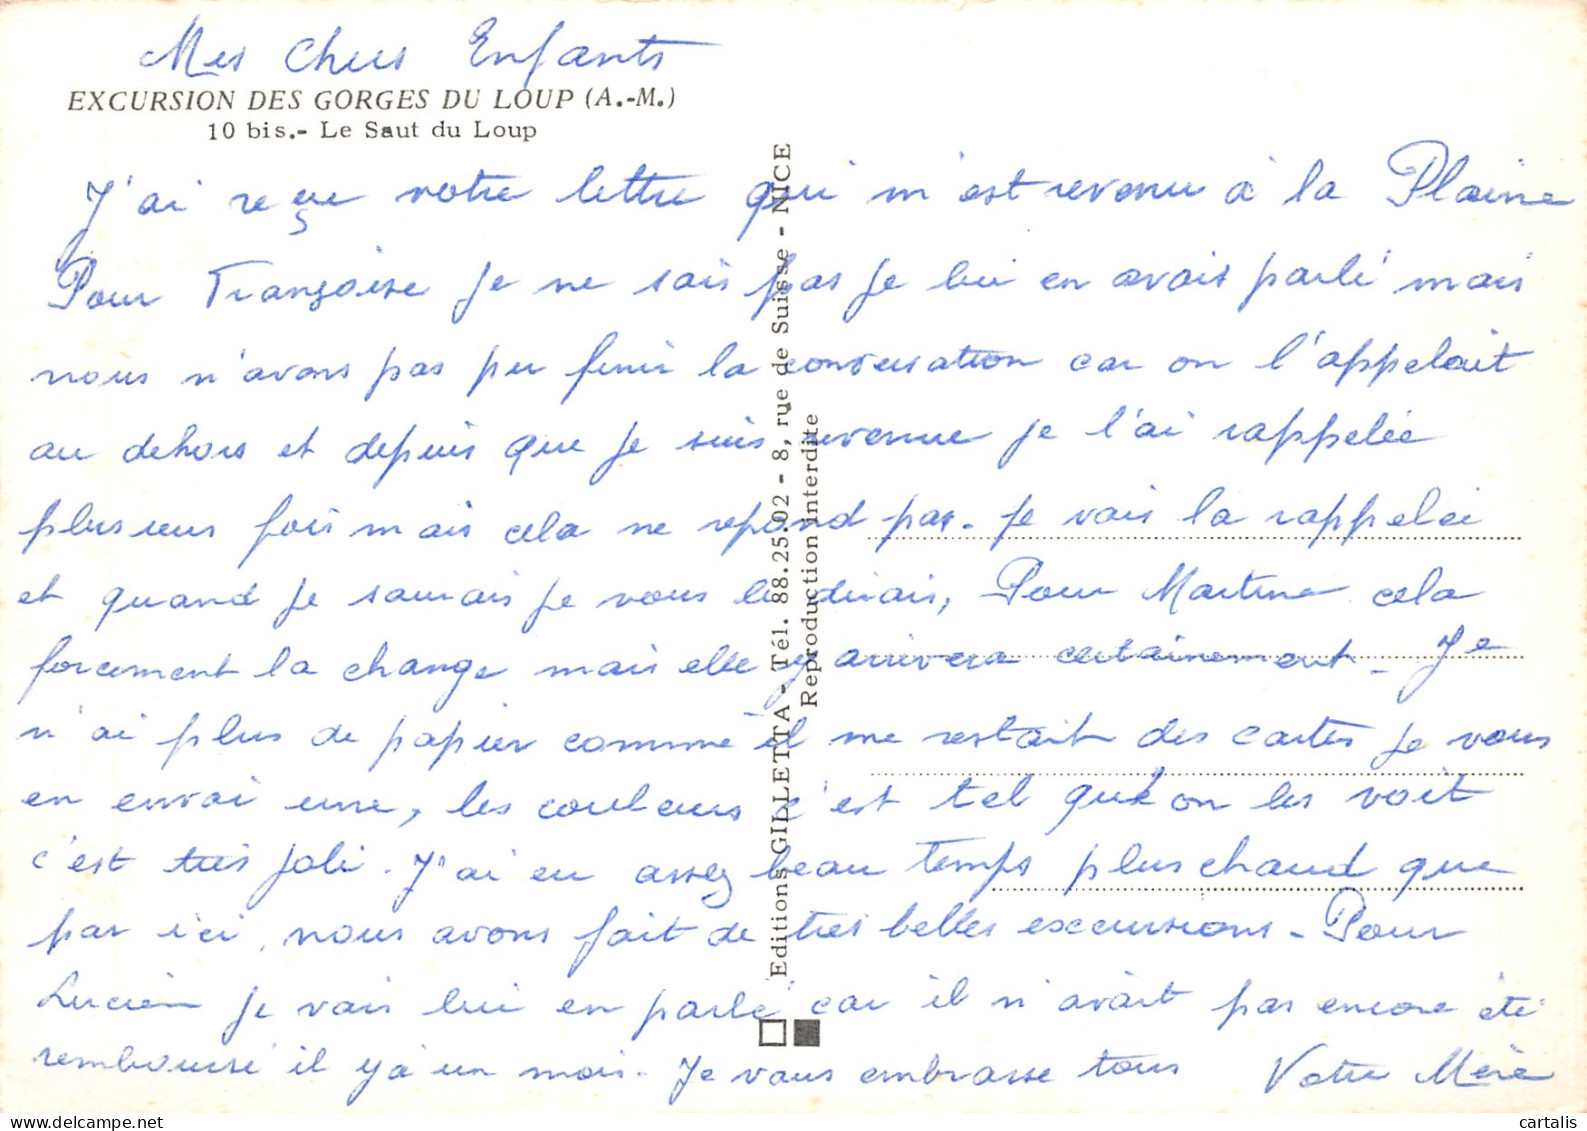 Mes Chers Enfants
EXCURSION DES GORGES DU LOUP (A.-M.)
10 bis.- Le Saut du Loup
J'ai reçue votre lettre qui m'est revenu à la Plaine
Pour Françoise je ne sais pas je lui en avais parlé mais
nous n'avons pas pu finir la conversation car on l'appelait
au dehors et depuis que je suis revenue je l'ai rappelée
plusieurs fois mais cela ne repond pas. je vais la rappelei
et quand je saurais je vous le dirais, Pour Martine cela
forcement la change mais elle y arrivera certainement. Je
n'ai plus de papier comme il me restait des cartes je vous
en envoi une, les couleurs c'est tel que on les voit
c'est très joli. J'ai eu assez beau temps plus chaud que
par ici, nous avons fait de très belles excursions - Pour
Lucien je vais lui en parlé car il n'avait pas encore été
remboursé il y a un mois. Je vous embrasse tous Votre Mère
Editions GILLETTA - Tél. 88.25.02 - 8, rue de Suisse - NICE
Reproduction interdite
cartalis